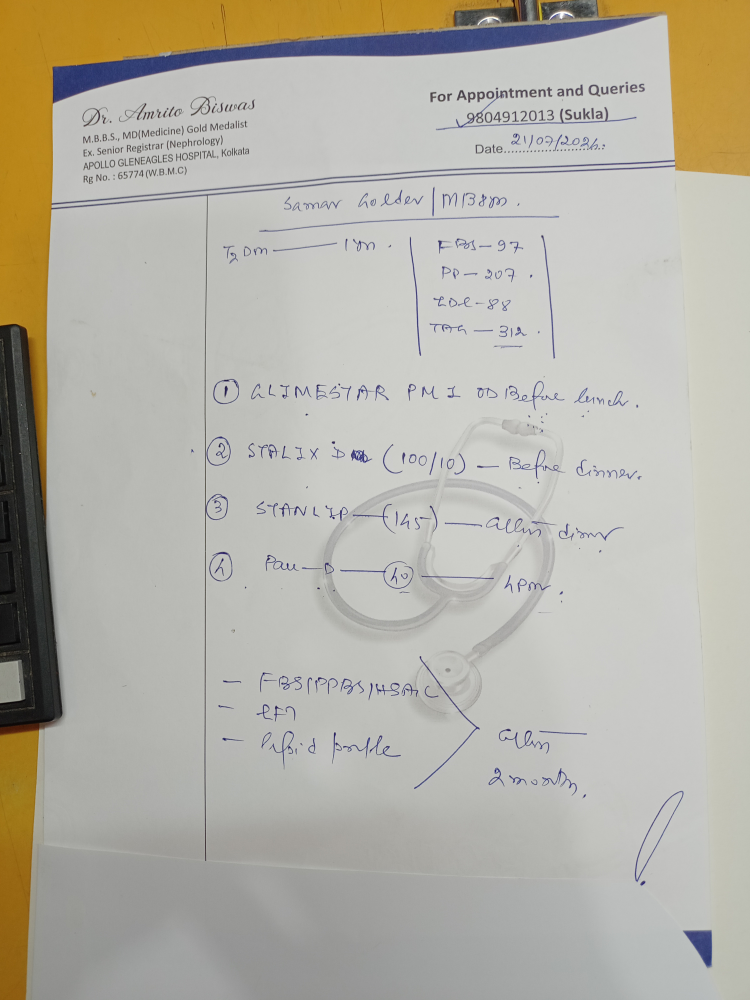 Dr. Amrito Biswas
M.B.B.S., MD(Medicine) Gold Medalist
Ex. Senior Registrar (Nephrology)
APOLLO GLENEAGLES HOSPITAL, Kolkata
Rg No. : 65774 (W.B.M.C)
For Appointment and Queries
9804912013 (Sukla)
Date 21/07/202
Samar Golder
T2DM — 1
FBS - 97
PP - 207.
LDL - 88
TAG - 312.
① GLIMESTAR PM1 OD Before lunch.
② STALIX D (100/10) — Before dinner.
③ STANLIP — (145) — dinner
④ Pan — D — 40
— FBS/PPBS/
— LFT
— Lipid profile
2 month.